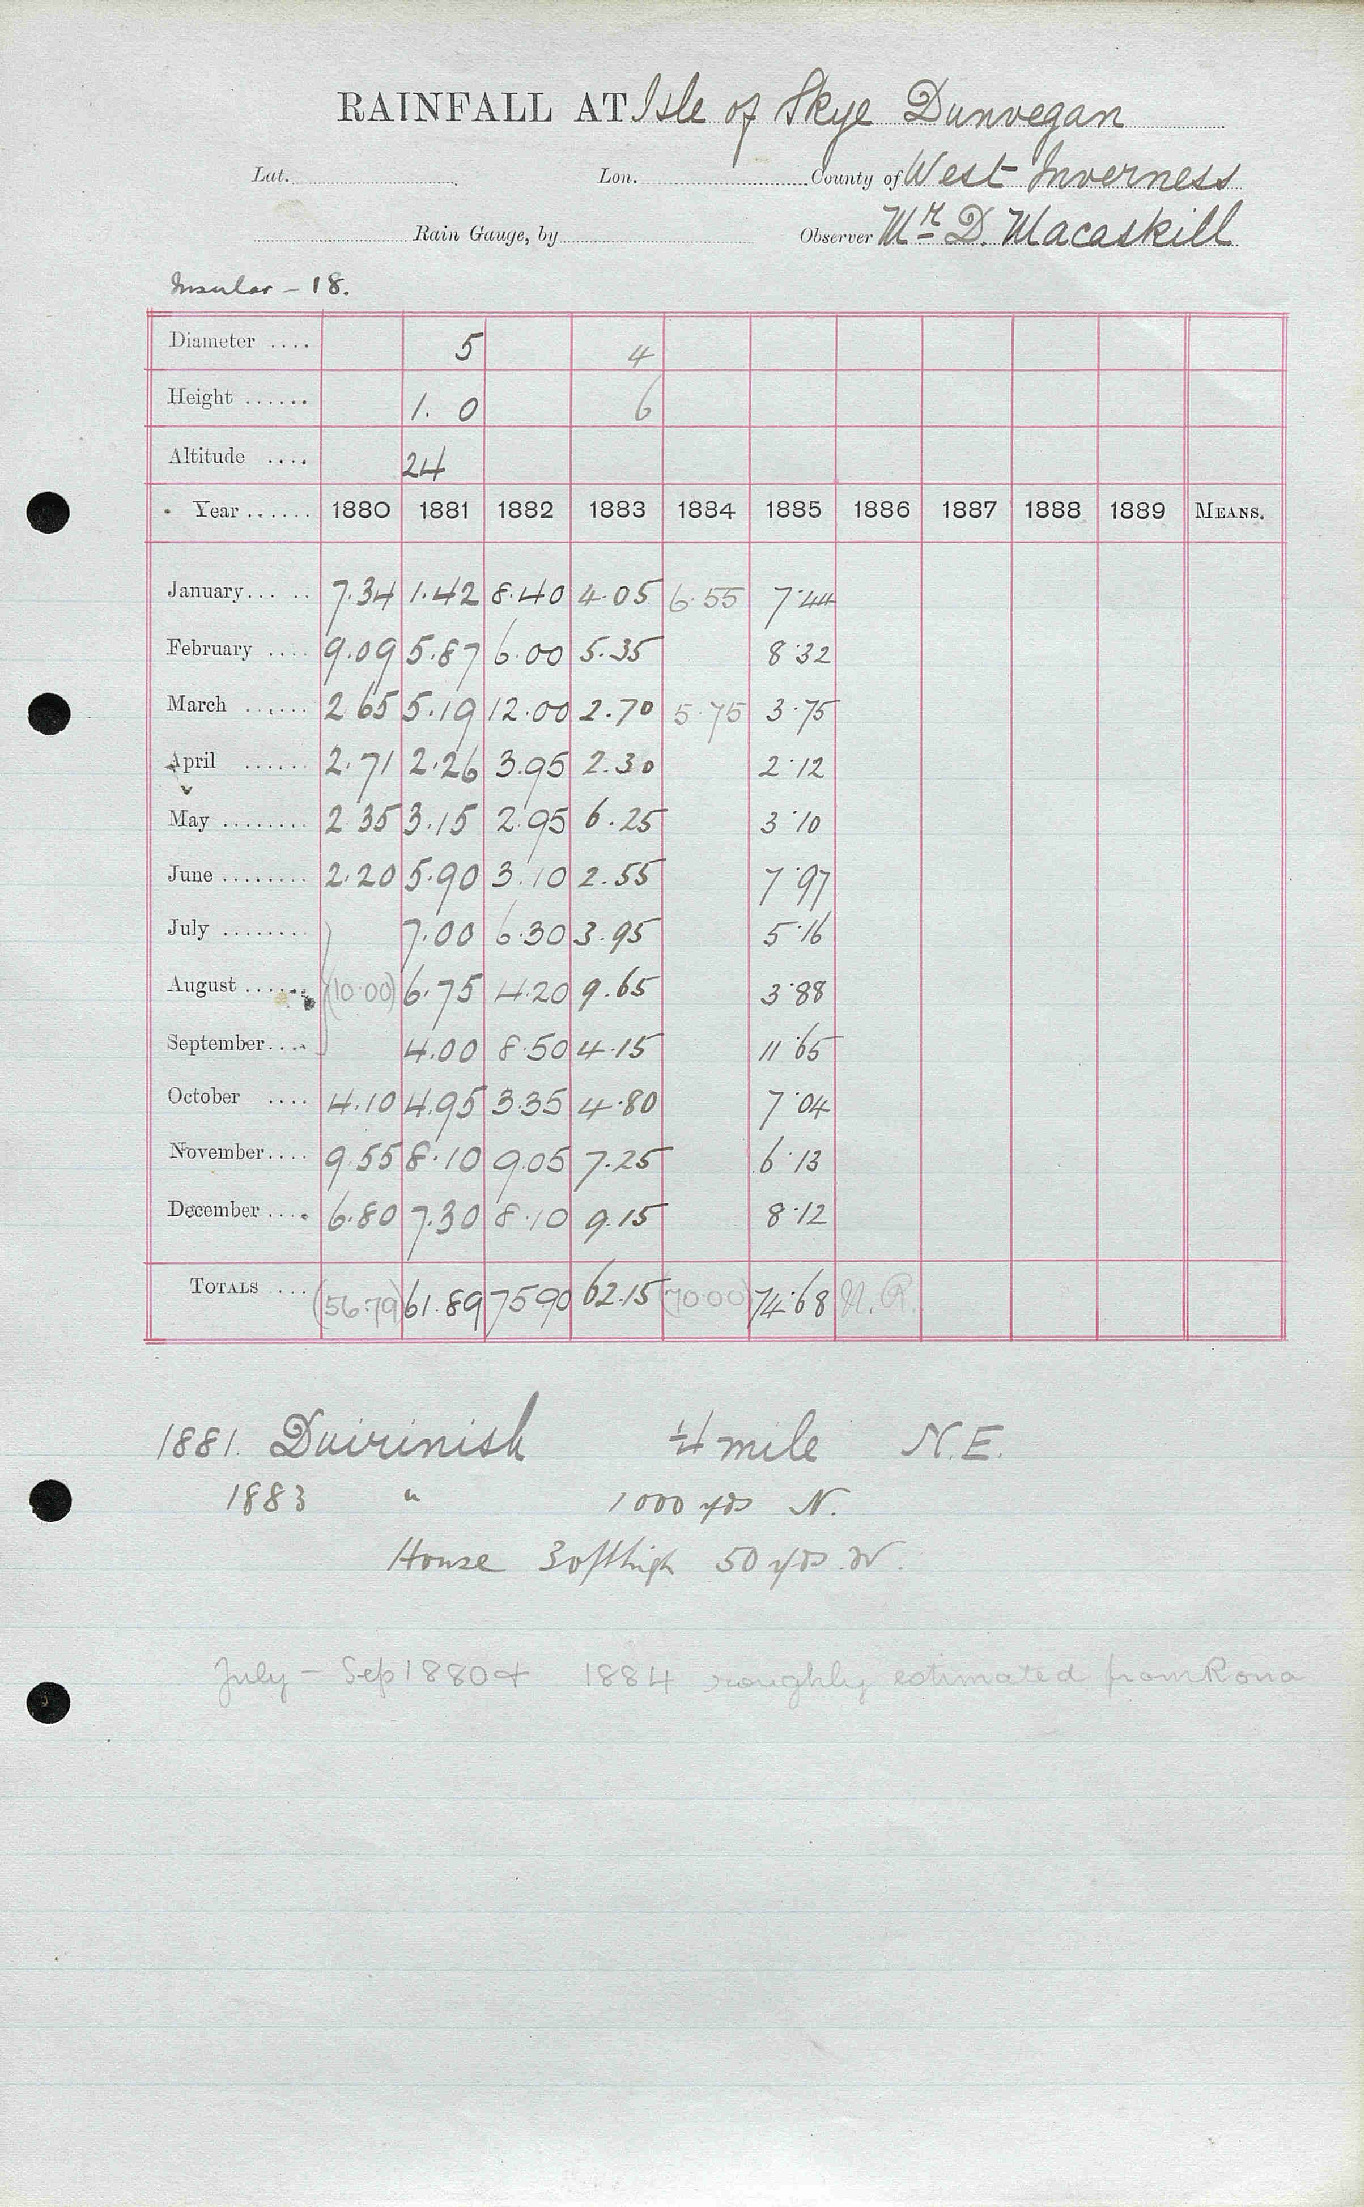 RAINFALL AT Isle of Skye Dunvegan
Lat. Lon. County of West Inverness
Rain Gauge, by Observer Mr D. Macaskill
Insular – 18.
Diameter .... 5 4
Height ...... 1. 0 6
Altitude .... 24
Year ...... 1880 1881 1882 1883 1884 1885 1886 1887 1888 1889 MEANS.
January ..... 7.34 1.42 8.40 4.05 6.55 7.44
February .... 9.09 5.87 6.00 5.35 8.32
March ...... 2 65 5.19 12.00 2.70 5.75 3.75
April ...... 2.71 2.26 3.95 2.30 2.12
May ........ 2 35 3.15 2.95 6.25 3.10
June ........ 2.20 5.90 3.10 2.55 7.97
July ........ 7.00 6.30 3.95 5.16
August ...... (10.00) 6.75 4.20 9.65 3.88
September.... 4.00 8.50 4.15 11.65
October .... 4.10 4.95 3.35 4.80 7.04
November.... 9.55 8.10 9.05 7.25 6.13
December .... 6.80 7.30 8.10 9.15 8.12
TOTALS ... (56.79) 61.89 75 90 62.15 (70.00) 74.68 N. R.
1881. Duirinish ¼ mile N.E.
1883 " 1000 yds N.
House 30ft high 50 yds. W.
July – Sep 1880 & 1884 roughly estimated from Rona